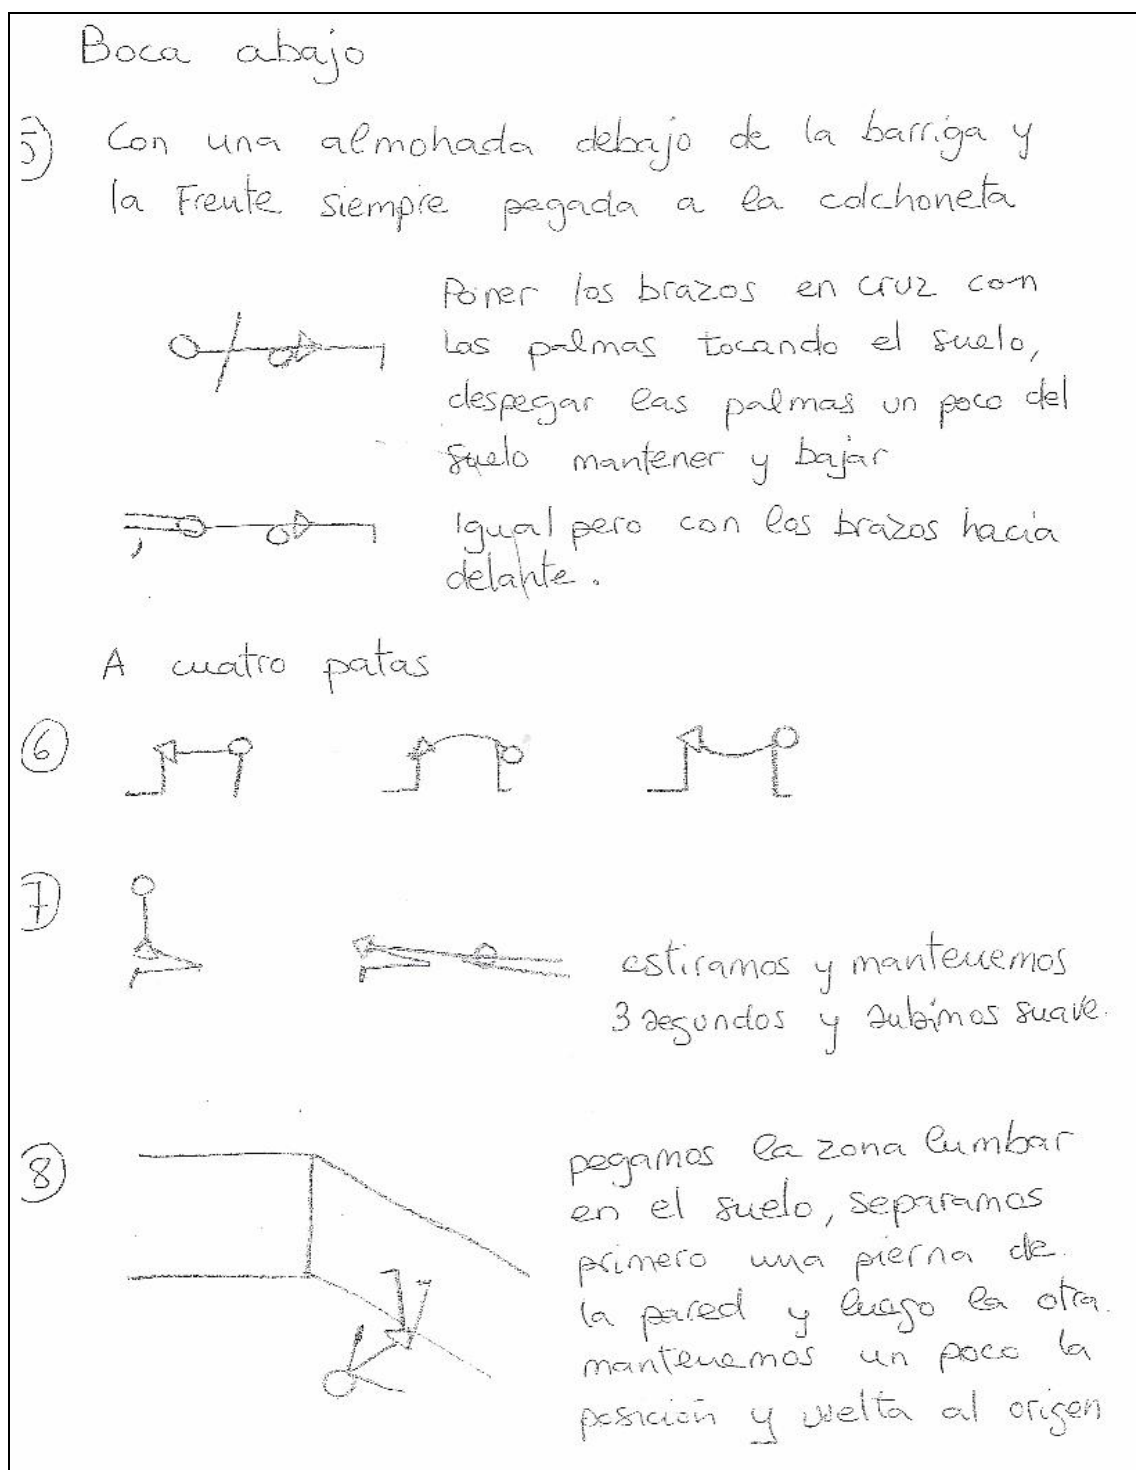 Boca abajo
5) Con una almohada debajo de la barriga y
la Frente siempre pegada a la colchoneta
Poner los brazos en cruz con
las palmas tocando el suelo,
despegar las palmas un poco del
suelo mantener y bajar
Igual pero con los brazos hacia
delante.
A cuatro patas
6
7
estiramos y mantenemos
3 segundos y subimos suave.
8
pegamos la zona lumbar
en el suelo, separamos
primero una pierna de
la pared y luego la otra.
mantenemos un poco la
posición y vuelta al origen